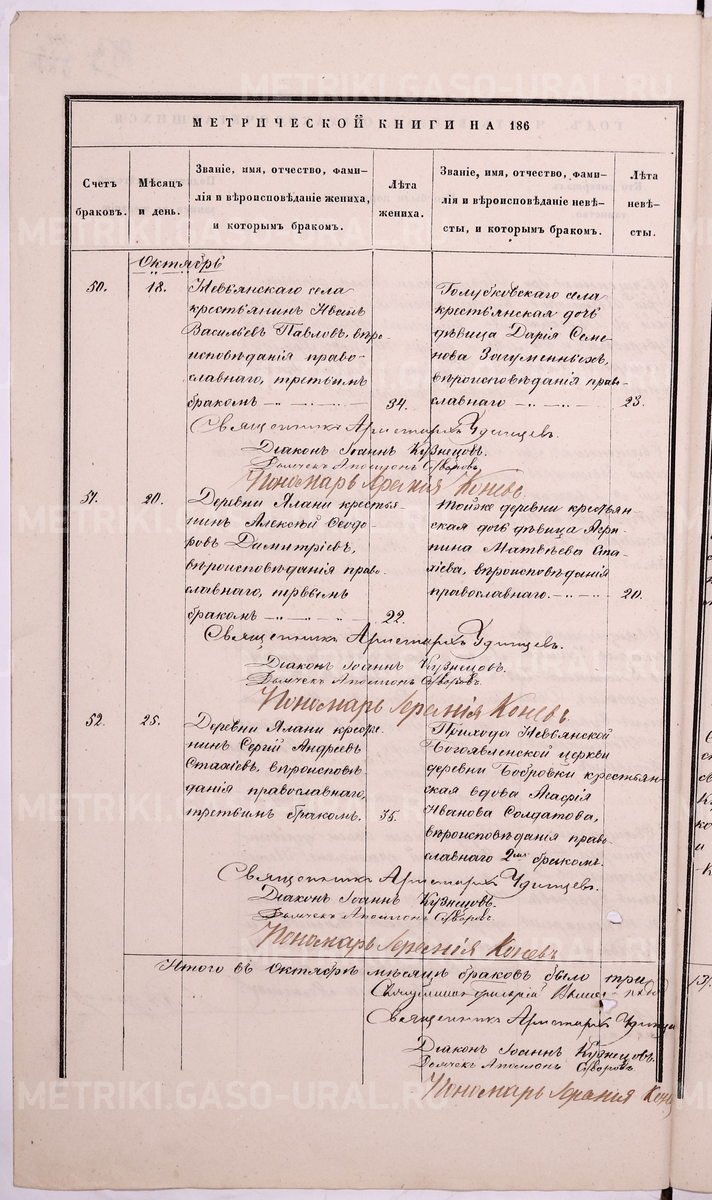 МЕТРИЧЕСКОЙ КНИГИ НА 186
Счетъ браковъ.
Мѣсяцъ и день.
Званіе, имя, отчество, фами-
лія и вѣроисповѣданіе жениха,
и которымъ бракомъ.
Лѣта жениха.
Званіе, имя, отчество, фами-
лія и вѣроисповѣданіе невѣ-
сты, и которымъ бракомъ.
Лѣта невѣ-
сты.
Октябрь
50.
18.
Невьянскаго села
крестьянинъ Иванъ
Васильевъ Павловъ, вѣро-
исповѣданія право-
славнаго, третьимъ
бракомъ
34.
Голубковскаго села
крестьянская дочь
дѣвица Дарія Семе-
нова Загуменныхъ,
вѣроисповѣданія право-
славнаго
23.
Священникъ Аристархъ Удинцевъ.
Діаконъ Іоаннъ Кузнецовъ.
Дьячекъ Аполлонъ
Пономарь Іеремія Коневъ.
51.
20.
Деревни Ялани крестья-
нинъ Алексѣй Ѳеодо-
ровъ Димитріевъ,
вѣроисповѣданія право-
славнаго, первымъ
бракомъ
22.
Тойже деревни крестьян-
ская дочь дѣвица Агри-
пина Матвѣева Ста-
хіева, вѣроисповѣданія
православнаго.
20.
Священникъ Аристархъ Удинцевъ.
Діаконъ Іоаннъ Кузнецовъ.
Дьячекъ Аполлонъ
Пономарь Іеремія Коневъ.
52.
25.
Деревни Ялани крестья-
нинъ Сергій Андреевъ
Стахіевъ, вѣроисповѣ-
данія православнаго,
третьимъ бракомъ.
35.
Прихода Невьянской
Богоявленской церкви
деревни Бобровки крестьян-
ская вдова Агафія
Иванова Солдатова,
вѣроисповѣданія право-
славнаго 2мъ бракомъ.
Священникъ Аристархъ Удинцевъ.
Діаконъ Іоаннъ Кузнецовъ.
Дьячекъ Аполлонъ
Пономарь Іеремія Коневъ
Итого въ Октябрѣ мѣсяцѣ браковъ было три
Священникъ Григорій
Священникъ Аристархъ Удинце
Діаконъ Іоаннъ Кузнецовъ.
Дьячекъ Аполлонъ
Пономарь Іеремія Коне
METRIKI.GASO-URAL.RU